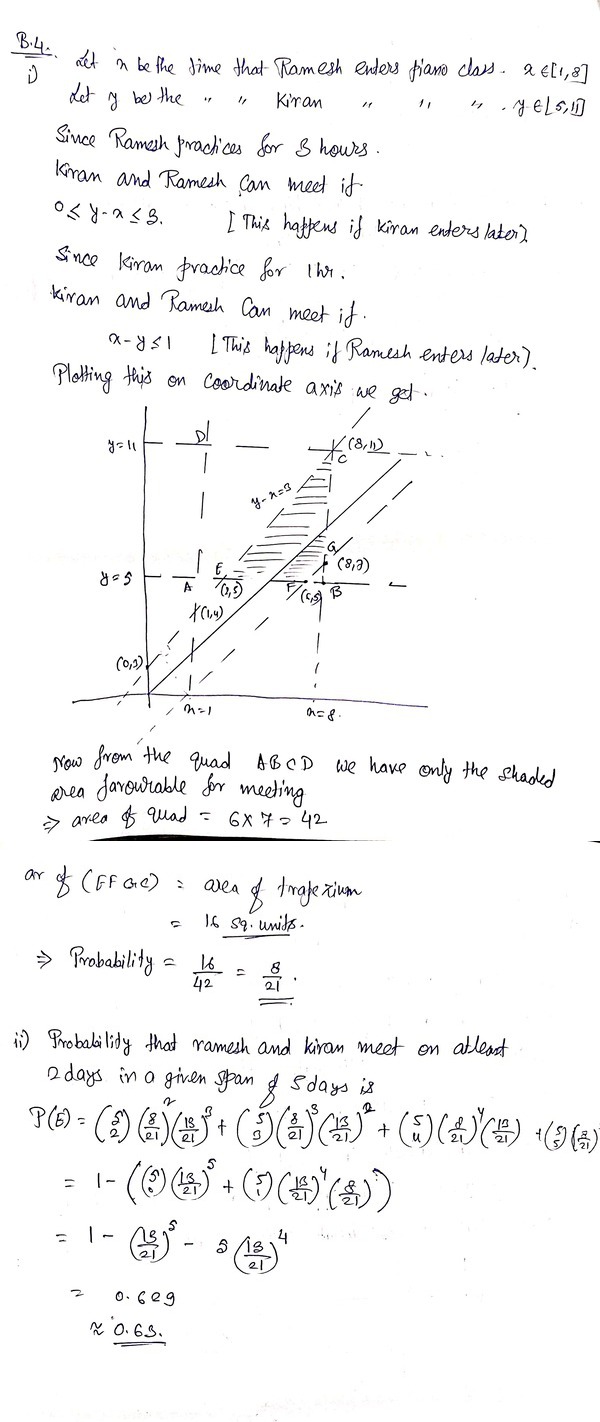 B.4.
i) Let x be the time that Ramesh enters piano class. x ∈ [1,8]
Let y be the " " Kiran " " " . y ∈ [5,11]
Since Ramesh practices for 3 hours.
Kiran and Ramesh can meet if
0 ≤ y-x ≤ 3. [This happens if Kiran enters later].
Since Kiran practice for 1 hr.
Kiran and Ramesh can meet if.
x-y ≤ 1 [This happens if Ramesh enters later].
Plotting this on coordinate axis we get.
y=11
D
(8,11)
C
y-x=3
G
(8,7)
y=5
A
E
(2,5)
F
(6,5)
B
(1,4)
(0,3)
x=1
x=8.
Now from the quad ABCD we have only the shaded
area favourable for meeting
⇒ area of quad = 6×7 = 42
ar of (EFGC) = area of trapezium
= 16 sq. units.
⇒ Probability = 16/42 = 8/21.
ii) Probability that ramesh and kiran meet on atleast
2 days in a given span of 5 days is
P(E) = (5 2)(8/21)^2(13/21)^3 + (5 3)(8/21)^3(13/21)^2 + (5 4)(8/21)^4(13/21) + (5 5)(8/21)
= 1 - ((5 0)(13/21)^5 + (5 1)(13/21)^4(8/21))
= 1 - (13/21)^5 - 5(13/21)^4
= 0.629
≈ 0.63.